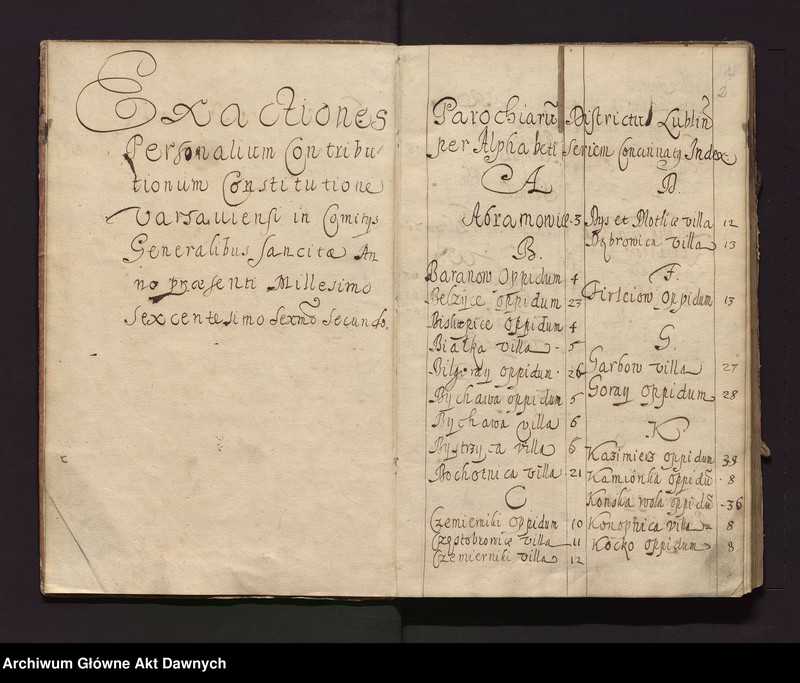 Exactiones
Personalium Contribu-
tionum Constitutione
Varsauiensi in Comitys
Generalibus sancitæ An
no præsenti Millesimo
Sexcentesimo Sexmo Secundo.
2
Parochiarũ Districtus Lublin
per Alphabeti Seriem Concinnatq Index
A
Abramowice 3
B.
Baranow Oppidum 4
Belzyce oppidum 23
Biskupice Oppidum 4
Białka villa 5
Bilgoray oppidum 26
Bychawa oppidum 5
Bychawa villa 6
Bystrzyca villa 6
Bochotnica villa 21
C
Czemierniki oppidum 10
Częstoborowice villa 11
Czemierniki villa 12
D.
Dys et Motlice villa 12
Dębrowica villa 13
F.
Firleiow oppidum 13
G.
Garbow villa 27
Goray oppidum 28
K.
Kazimierz oppidum 39
Kamionka oppidũ 8
Konska wola oppidũ 36
Konopnica villa 8
Kocko oppidum 8
Archiwum Główne Akt Dawnych